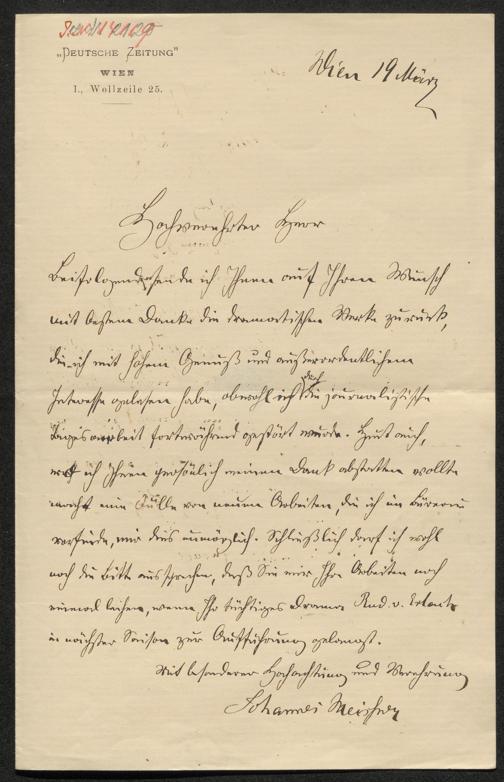 „DEUTSCHE ZEITUNG“
WIEN
I., Wollzeile 25.
Wien 19 März
Hochverehrter Herr
Beifolgend sende ich Ihnen auf Ihren Wunsch
mit bestem Danke die dramatischen Werke zurück,
die ich mit hohem Genuß und außerordentlichem
Interesse gelesen habe, obwohl ich durch die journalistische
Tagesarbeit fortwährend gestört wurde. Heut auch,
ich Ihnen persönlich meinen Dank abstatten wollte
macht eine Fülle von neuen Arbeiten, die ich im Bureau
vorfinde, mir dies unmöglich. Schließlich darf ich wohl
noch die Bitte aussprechen, daß Sie mir Ihre Arbeiten noch
einmal leihen, wenn Ihr tüchtiges Drama Rud. v.
in nächster Saison zur Aufführung gelangt.
Mit besonderer Hochachtung und Verehrung
Johannes Meissner